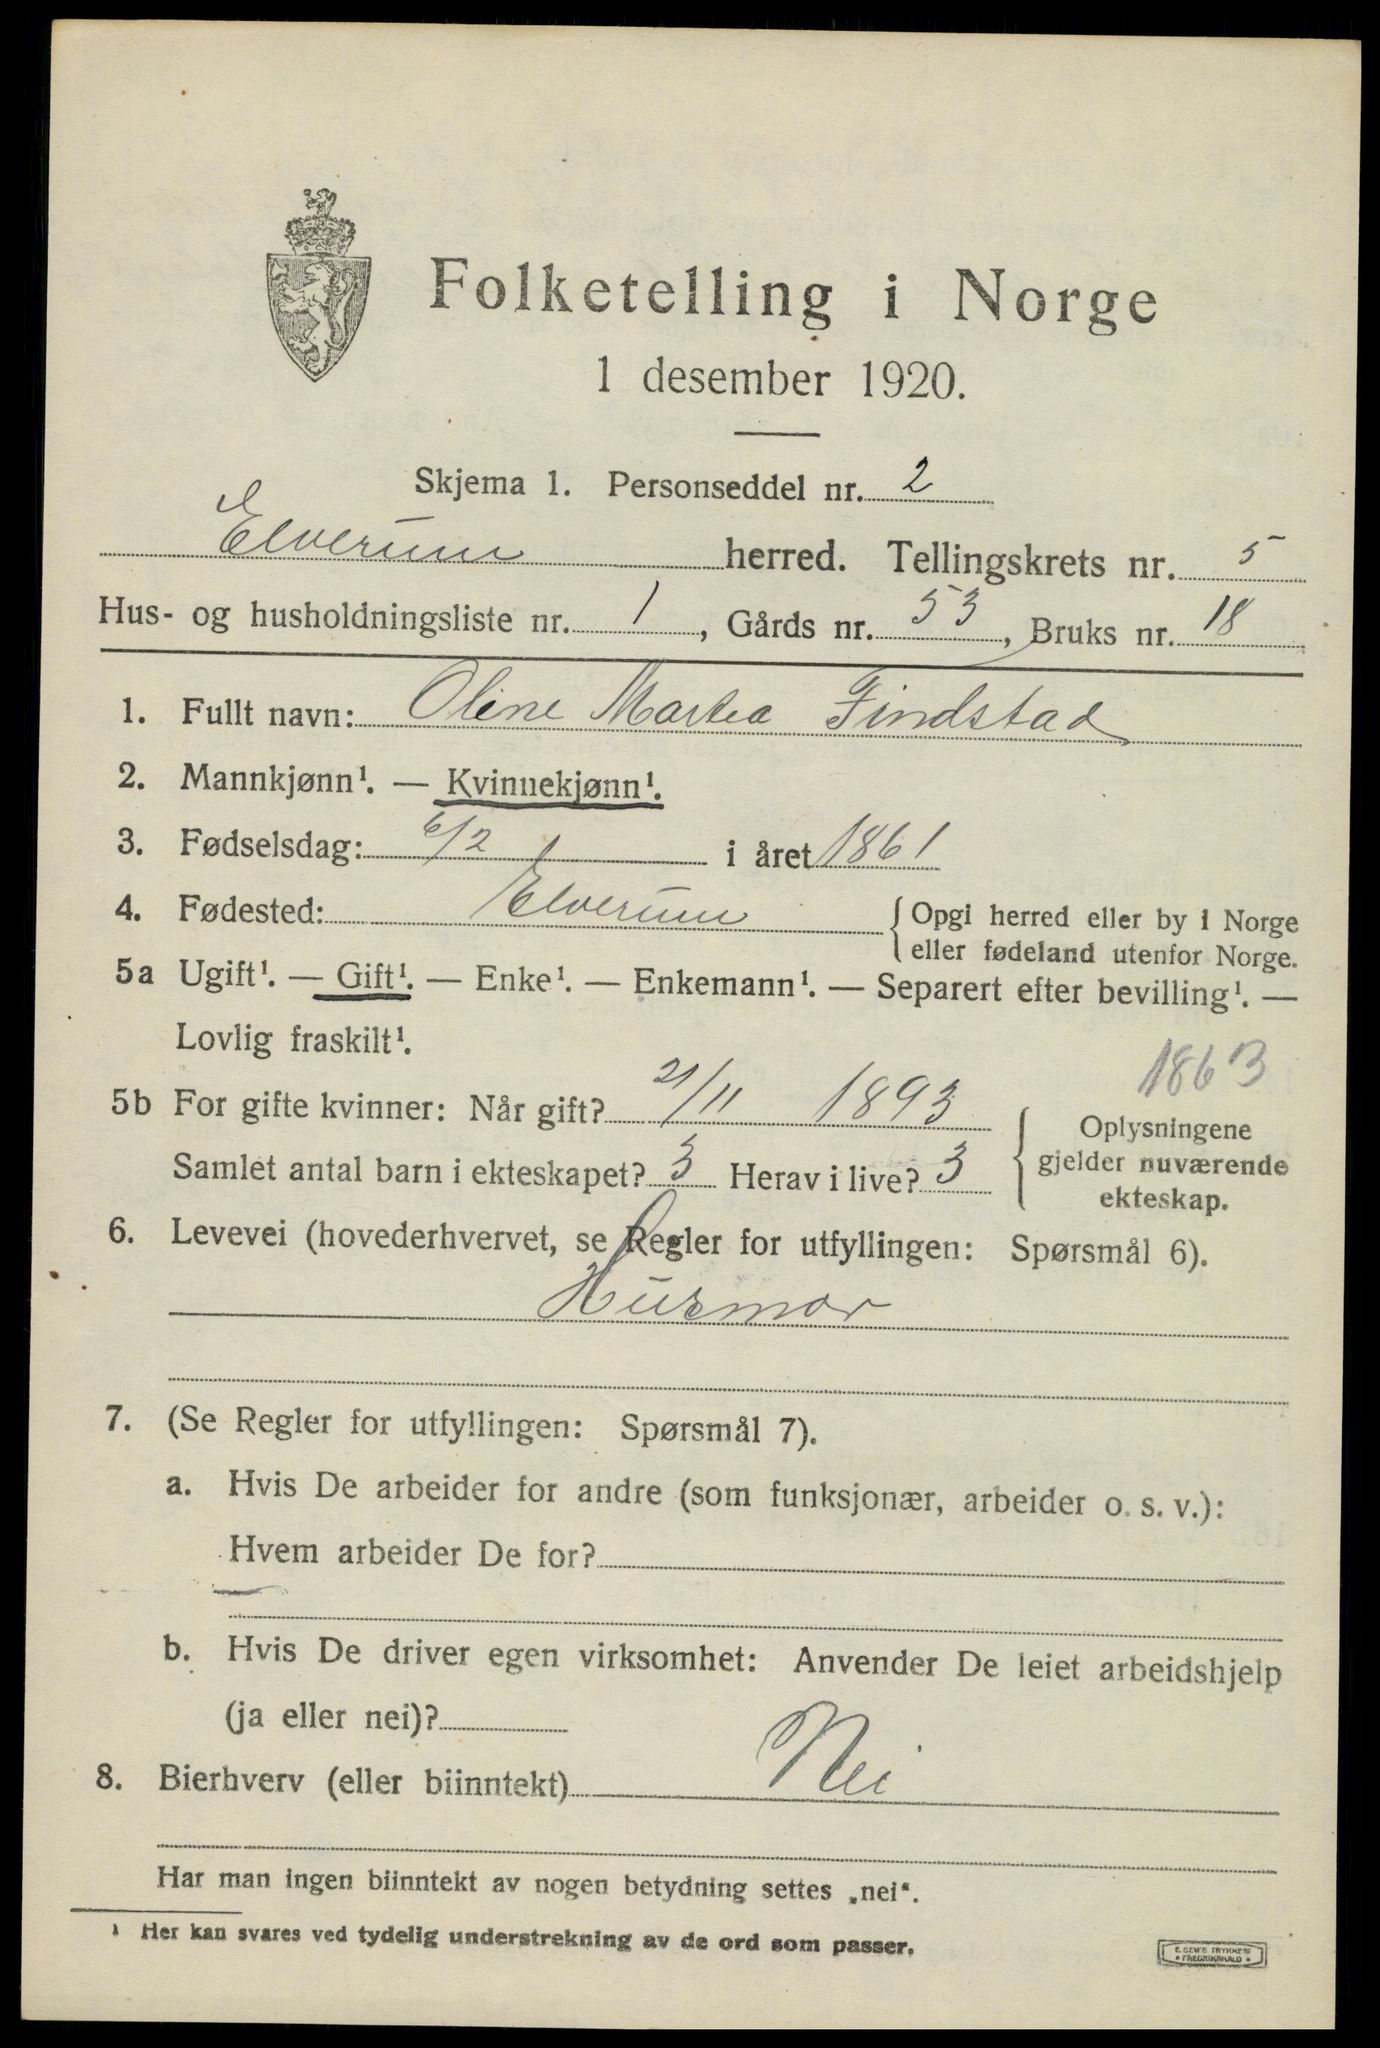 Folketelling i Norge
1 desember 1920.
Skjema 1. Personseddel nr. 2
Elverum herred. Tellingskrets nr. 5
Hus- og husholdningsliste nr. 1, Gårds nr. 53, Bruks nr. 18
1. Fullt navn: Oline Martea Findstad
2. Mannkjønn¹. — Kvinnekjønn¹.
3. Fødselsdag: 6/2 i året 1861
4. Fødested: Elverum { Opgi herred eller by i Norge
eller fødeland utenfor Norge.
5a Ugift¹. — Gift¹. — Enke¹. — Enkemann¹. — Separert efter bevilling¹. —
Lovlig fraskilt¹.
1863
5b For gifte kvinner: Når gift? 21/11 1893 { Oplysningene
gjelder nuværende
ekteskap.
Samlet antal barn i ekteskapet? 3 Herav i live? 3
6. Levevei (hovederhvervet, se Regler for utfyllingen: Spørsmål 6).
Husmor
7. (Se Regler for utfyllingen: Spørsmål 7).
a. Hvis De arbeider for andre (som funksjonær, arbeider o. s. v.):
Hvem arbeider De for?
b. Hvis De driver egen virksomhet: Anvender De leiet arbeidshjelp
(ja eller nei)?
8. Bierhverv (eller biinntekt) Nei
Har man ingen biinntekt av nogen betydning settes „nei“.
¹ Her kan svares ved tydelig understrekning av de ord som passer.
E. SEM'S TRYKKERI
• FREDRIKSHALD •